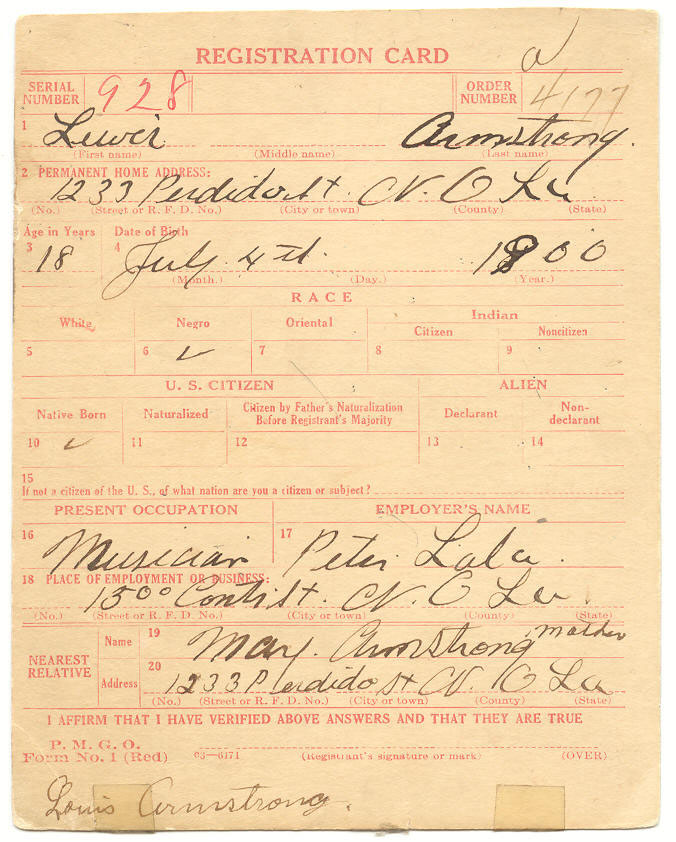 REGISTRATION CARD a
SERIAL NUMBER 928 ORDER NUMBER 4177
1 Lewis Armstrong.
(First name) (Middle name) (Last name)
2 PERMANENT HOME ADDRESS:
1233 Perdido St. N. O La
(No.) (Street or R. F. D. No.) (City or town) (County) (State)
Age in Years Date of Birth
3 18 4 July 4th 1900
(Month.) (Day.) (Year.)
RACE
White Negro Oriental Indian
Citizen Noncitizen
5 6 ✓ 7 8 9
U. S. CITIZEN ALIEN
Native Born Naturalized Citizen by Father's Naturalization Before Registrant's Majority Declarant Non-declarant
10 ✓ 11 12 13 14
15
If not a citizen of the U. S., of what nation are you a citizen or subject?
PRESENT OCCUPATION EMPLOYER'S NAME
16 Musician 17 Peter Lala.
18 PLACE OF EMPLOYMENT OR BUSINESS:
1500 Conti St. N. O La.
(No.) (Street or R. F. D. No.) (City or town) (County) (State)
NEAREST RELATIVE Name 19 Mary. Armstrong Mother
Address 20 1233 Perdido St N. O La
(No.) (Street or R. F. D. No.) (City or town) (County) (State)
I AFFIRM THAT I HAVE VERIFIED ABOVE ANSWERS AND THAT THEY ARE TRUE
P. M. G. O.
Form No. 1 (Red) 03—6171 (Registrant's signature or mark) (OVER)
Louis Armstrong.